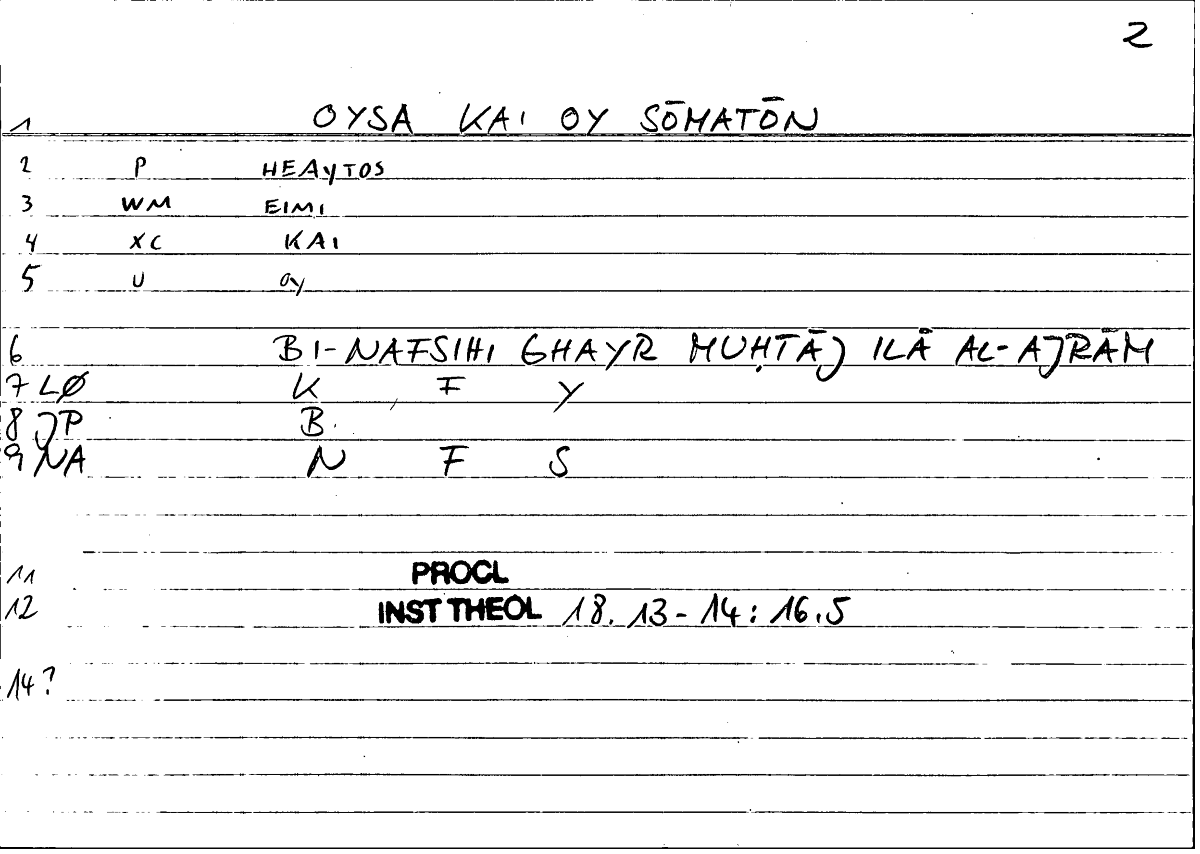 2
1 OYSA KAI OY SŌMATŌN
2 P HEAYTOS
3 WM EIMI
4 XC KAI
5 U OY
6 BI-NAFSIHI GHAYR MUḤTĀJ ILĀ AL-AJRĀM
7 LØ K F Y
8 JP B
9 NA N F S
11 PROCL
12 INST THEOL 18.13-14: 16.5
14?